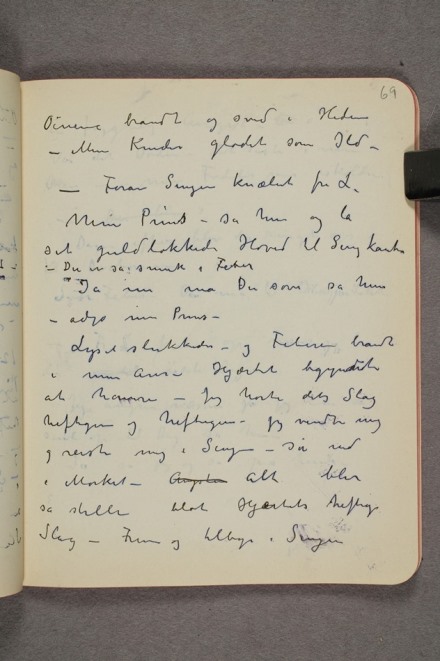 69
Öinene brandt og sved i Heden
– Mine Kinder glødet som Ild –
— Foran Sengen knælet frk L.
Min Prins – sa hun og la
sit guldlokkede Hoved til Sengkanten
– Du er så smuk i Feber
Ja nu må Du sove sa hun
– adjø min Prins –
Lyset slukkedes – og Feberen brandt
i mine Årer – Hjærtet begyndte
at hamre – Jeg hørte dets Slag
heftigere og heftigere – Jeg vendte mig
og reiste mig i Sengen – så ud
i Mørket – Alt blev
så stille blot Hjærtets heftige
Slag – Frem og tilbage i Sengen